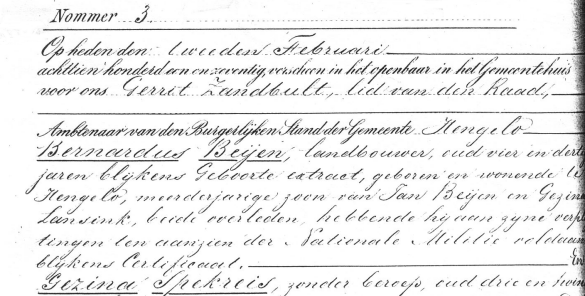 Nommer 3
Op heden den tweeden Februari
achttien honderd een en zeventig, verscheen in het openbaar in het Gemeentehuis
voor ons Gerrit Zandbult, lid van den Raad,
Ambtenaar van den Burgerlijken Stand der Gemeente Hengelo
Bernardus Beijen, landbouwer, oud vier en dert
jaren blijkens Geboorte extract, geboren en wonende te
Hengelo, meerderjarige zoon van Jan Beijen en Gezina
Lansink, beide overleden, hebbende hij aan zyne verp
tingen ten aanzien der Nationale Militie voldaan
blykens Certificaat. En
Gezina Spekreis, zonder beroep, oud drie en twin